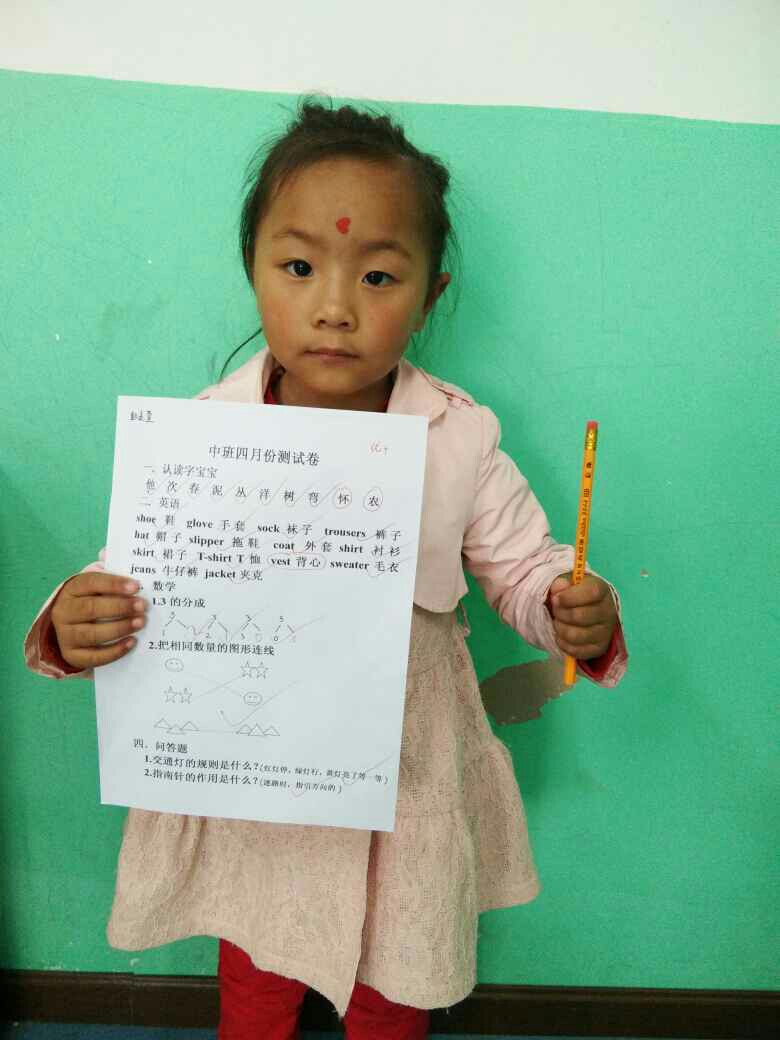 优+
中班四月份测试卷
一、认读字宝宝
他 次 春 泥 丛 洋 树 弯 怀 农
二 英语
shoe 鞋 glove 手套 sock 袜子 trousers 裤子
hat 帽子 slipper 拖鞋 coat 外套 shirt 衬衫
skirt 裙子 T-shirt T 恤 vest 背心 sweater 毛衣
jeans 牛仔裤 jacket 夹克
数学
1.3 的分成
3 3 3 3
1 2 3 0
2.把相同数量的图形连线
四．问答题
1.交通灯的规则是什么？(红灯停，绿灯行，黄灯亮了等一等)
2.指南针的作用是什么？(迷路时，指引方向的)